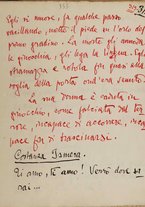 333
Egli si muove, fa qualche passo
vacillando, mette il piede su l'orlo del
primo gradino. La morte gli annoda
le ginocchia, gli lega la lingua. Egli
stramazza e rotola fin giù, alla
soglia della porta ond'era venuto.
La sua donna è caduta in
ginocchio, come falciata dal ter-
rore, incapace di accorrere, inca-
pace fin di trascinarsi.
Costanza Tamera.
Ti amo, ti amo! Verrò dove sa-
rai...